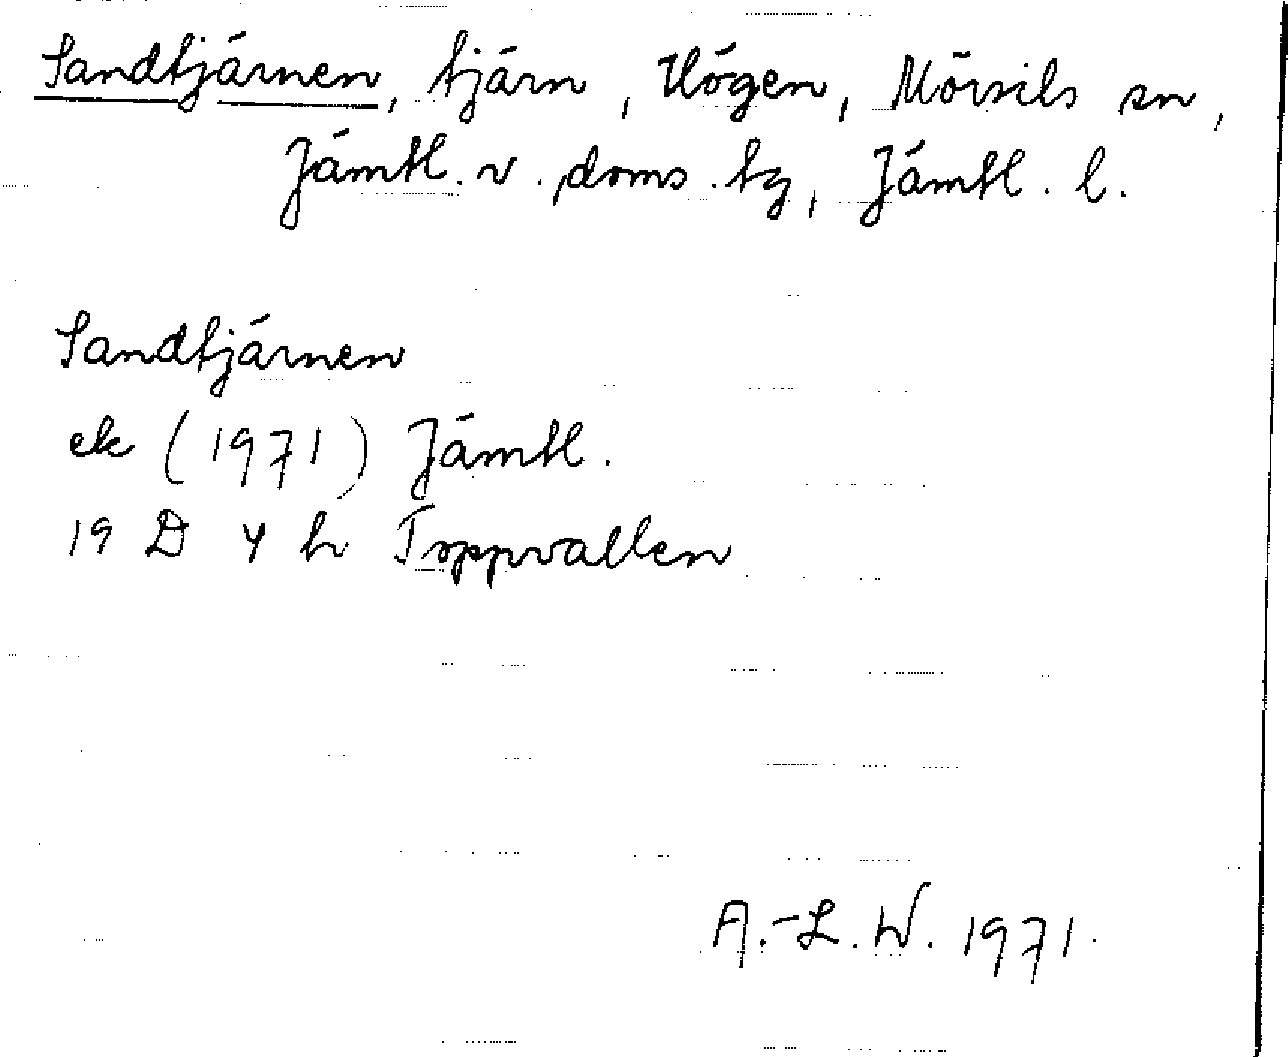 Sandtjärnen, tjärn, Högen, Mörsils sn,
Jämtl. v. doms. tg, Jämtl. l.
Sandtjärnen
ek (1971) Jämtl.
19 D 4 h Toppvallen
A.-L. W. 1971.